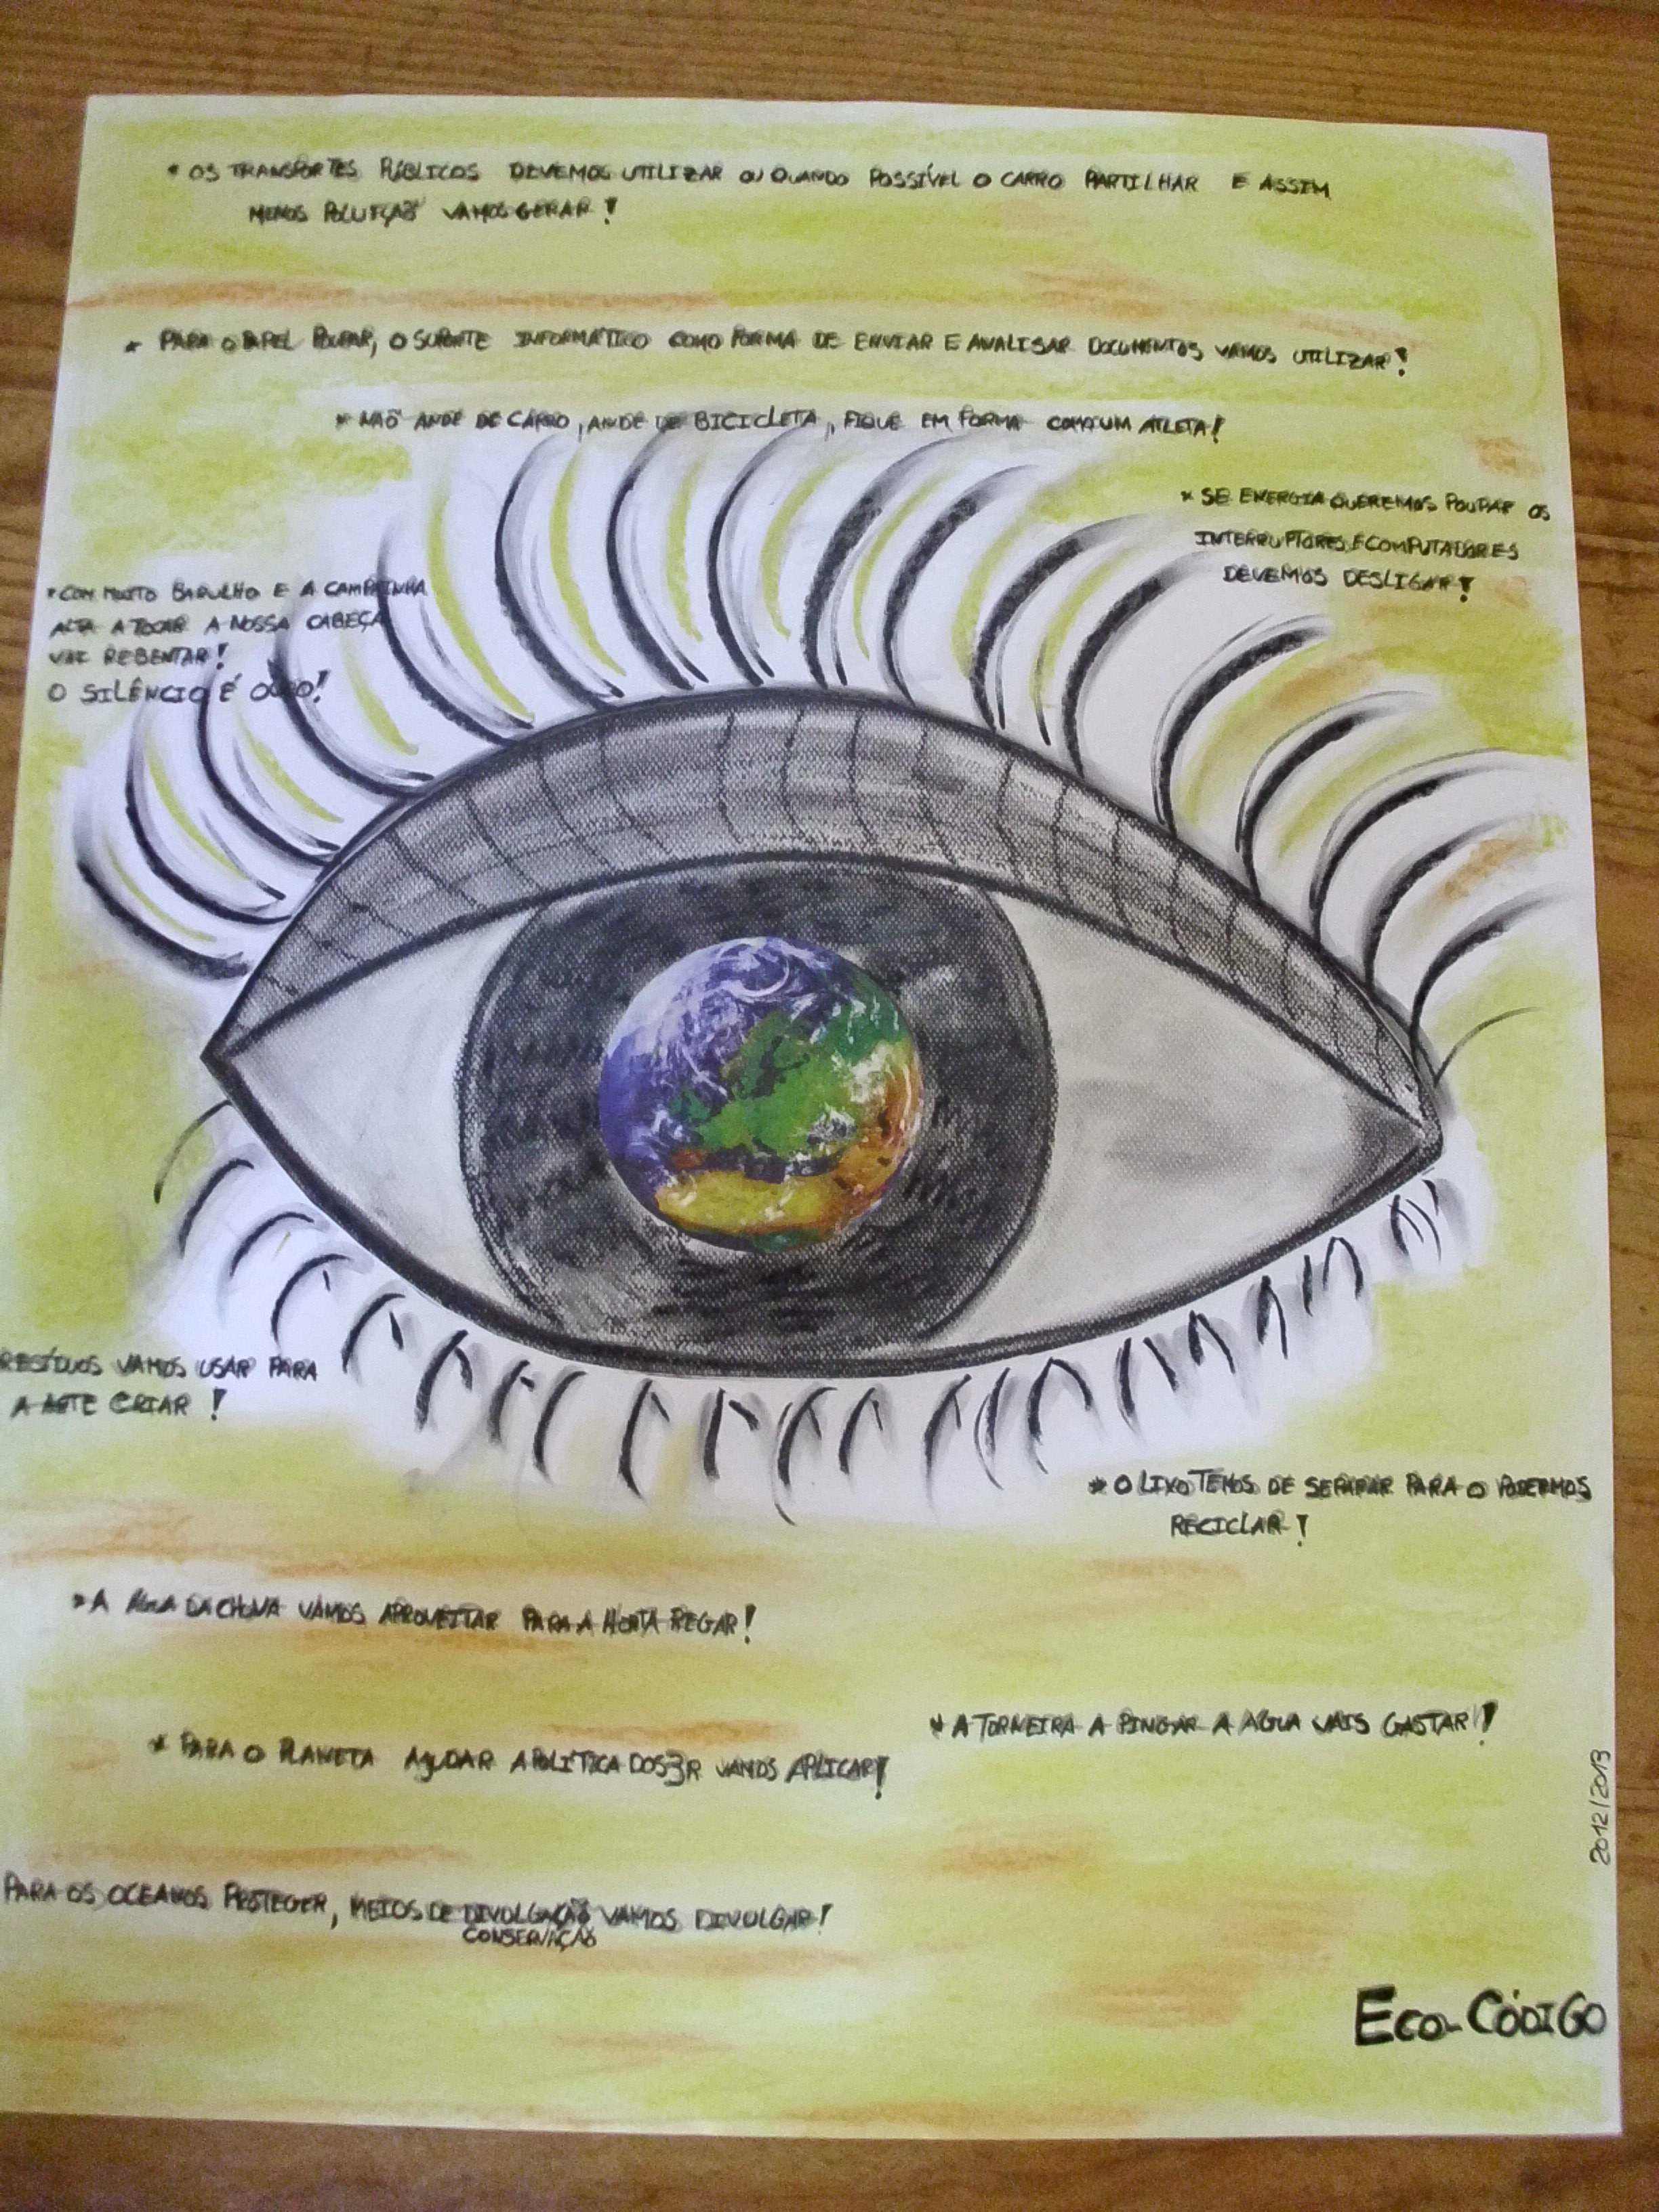 * OS TRANSPORTES PÚBLICOS DEVEMOS UTILIZAR OU QUANDO POSSÍVEL O CARRO PARTILHAR E ASSIM
MENOS POLUIÇÃO VAMOS GERAR!
* PARA O PAPEL POUPAR, O SUPORTE INFORMÁTICO COMO FORMA DE ENVIAR E ANALISAR DOCUMENTOS VAMOS UTILIZAR!
* NÃO ANDE DE CARRO, ANDE DE BICICLETA, FIQUE EM FORMA COMO UM ATLETA!
* SE ENERGIA QUEREMOS POUPAR OS
INTERRUPTORES E COMPUTADORES
DEVEMOS DESLIGAR!
* COM MUITO BARULHO E A CAMPAINHA
ALTA A TOCAR A NOSSA CABEÇA
VAI REBENTAR!
O SILÊNCIO É OURO!
RESÍDUOS VAMOS USAR PARA
A ARTE CRIAR!
* O LIXO TEMOS DE SEPARAR PARA O PODERMOS
RECICLAR!
* A ÁGUA DA CHUVA VAMOS APROVEITAR PARA A HORTA REGAR!
* A TORNEIRA A PINGAR A AGUA VAIS GASTAR!
* PARA O PLANETA AJUDAR A POLÍTICA DOS 3R VAMOS APLICAR!
PARA OS OCEANOS PROTEGER, MEIOS DE DIVULGAÇÃO VAMOS DIVULGAR!
CONSERVAÇÃO
2012/2013
ECO-CÓDIGO